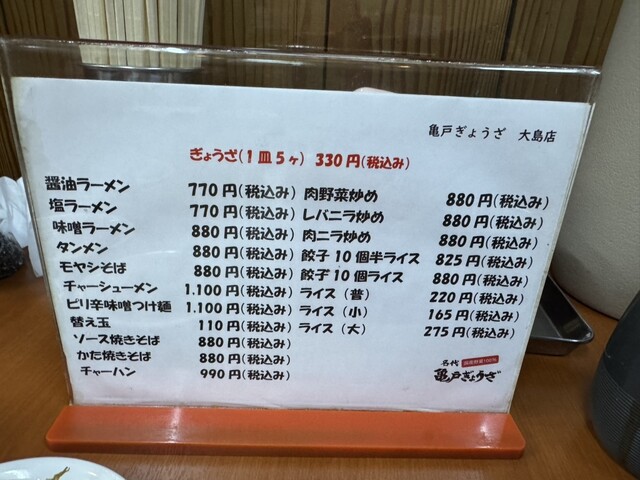 亀戸ぎょうざ 大島店
ぎょうざ(1皿5ヶ) 330円(税込み)
醤油ラーメン 770円(税込み) 肉野菜炒め 880円(税込み)
塩ラーメン 770円(税込み) レバニラ炒め 880円(税込み)
味噌ラーメン 880円(税込み) 肉ニラ炒め 880円(税込み)
タンメン 880円(税込み) 餃子10個半ライス 825円(税込み)
モヤシそば 880円(税込み) 餃子10個ライス 880円(税込み)
チャーシューメン 1.100円(税込み) ライス(普) 220円(税込み)
ピリ辛味噌つけ麺 1.100円(税込み) ライス(小) 165円(税込み)
替え玉 110円(税込み) ライス(大) 275円(税込み)
ソース焼きそば 880円(税込み)
かた焼きそば 880円(税込み)
チャーハン 990円(税込み)
名代 国産野菜100%
亀戸ぎょうざ